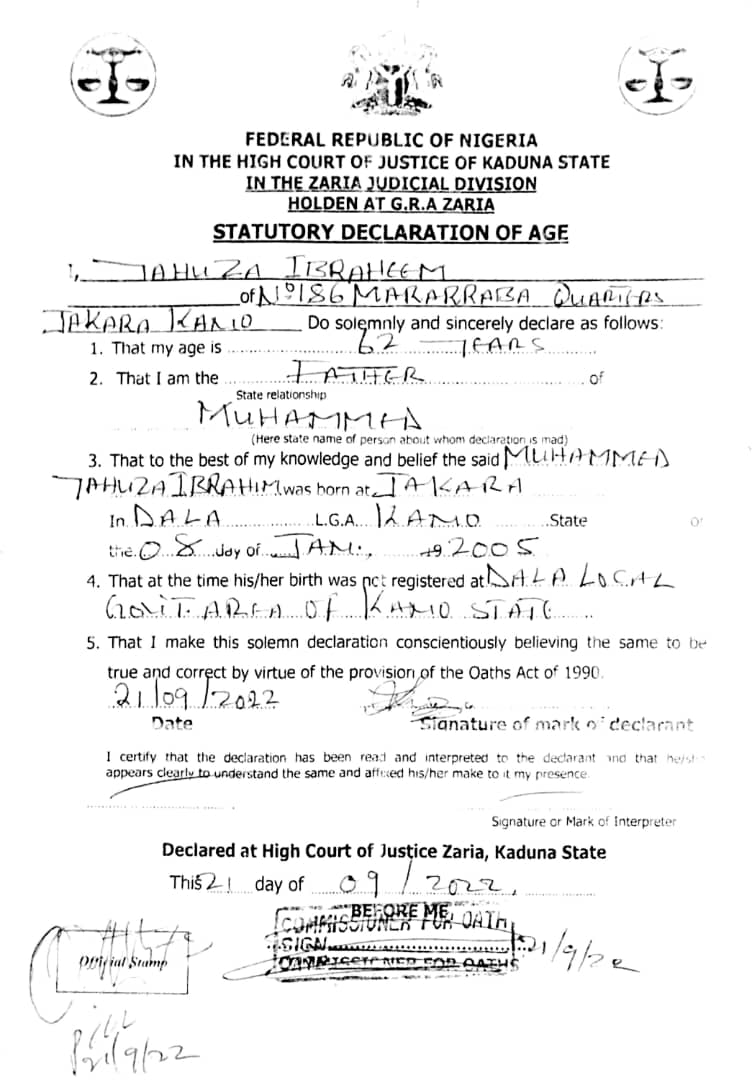 FEDERAL REPUBLIC OF NIGERIA
IN THE HIGH COURT OF JUSTICE OF KADUNA STATE
IN THE ZARIA JUDICIAL DIVISION
HOLDEN AT G.R.A ZARIA
STATUTORY DECLARATION OF AGE
I, TAHUZA IBRAHEEM
of No 186 MARARRABA QUARTERS
JAKARA KANO Do solemnly and sincerely declare as follows:
1. That my age is 62 YEARS
2. That I am the FATHER of
State relationship
MUHAMMED
(Here state name of person about whom declaration is mad)
3. That to the best of my knowledge and belief the said MUHAMMED
TAHUZA IBRAHIM was born at JAKARA
In DALA L.G.A. KANO State
the 08 day of JAN., 19 2005
4. That at the time his/her birth was not registered at DALA LOCAL
GOVT. AREA OF KANO STATE
5. That I make this solemn declaration conscientiously believing the same to be
true and correct by virtue of the provision of the Oaths Act of 1990.
21/09/2022
Date Signature of mark of declarant
I certify that the declaration has been read and interpreted to the declarant and that he/she
appears clearly to understand the same and affixed his/her make to it my presence.
Signature or Mark of Interpreter
Declared at High Court of Justice Zaria, Kaduna State
This 21 day of 09/2022,
BEFORE ME,
COMMISSIONER FOR OATH
SIGN 21/9/22
COMMISSIONER FOR OATHS
Official Stamp
21/9/22